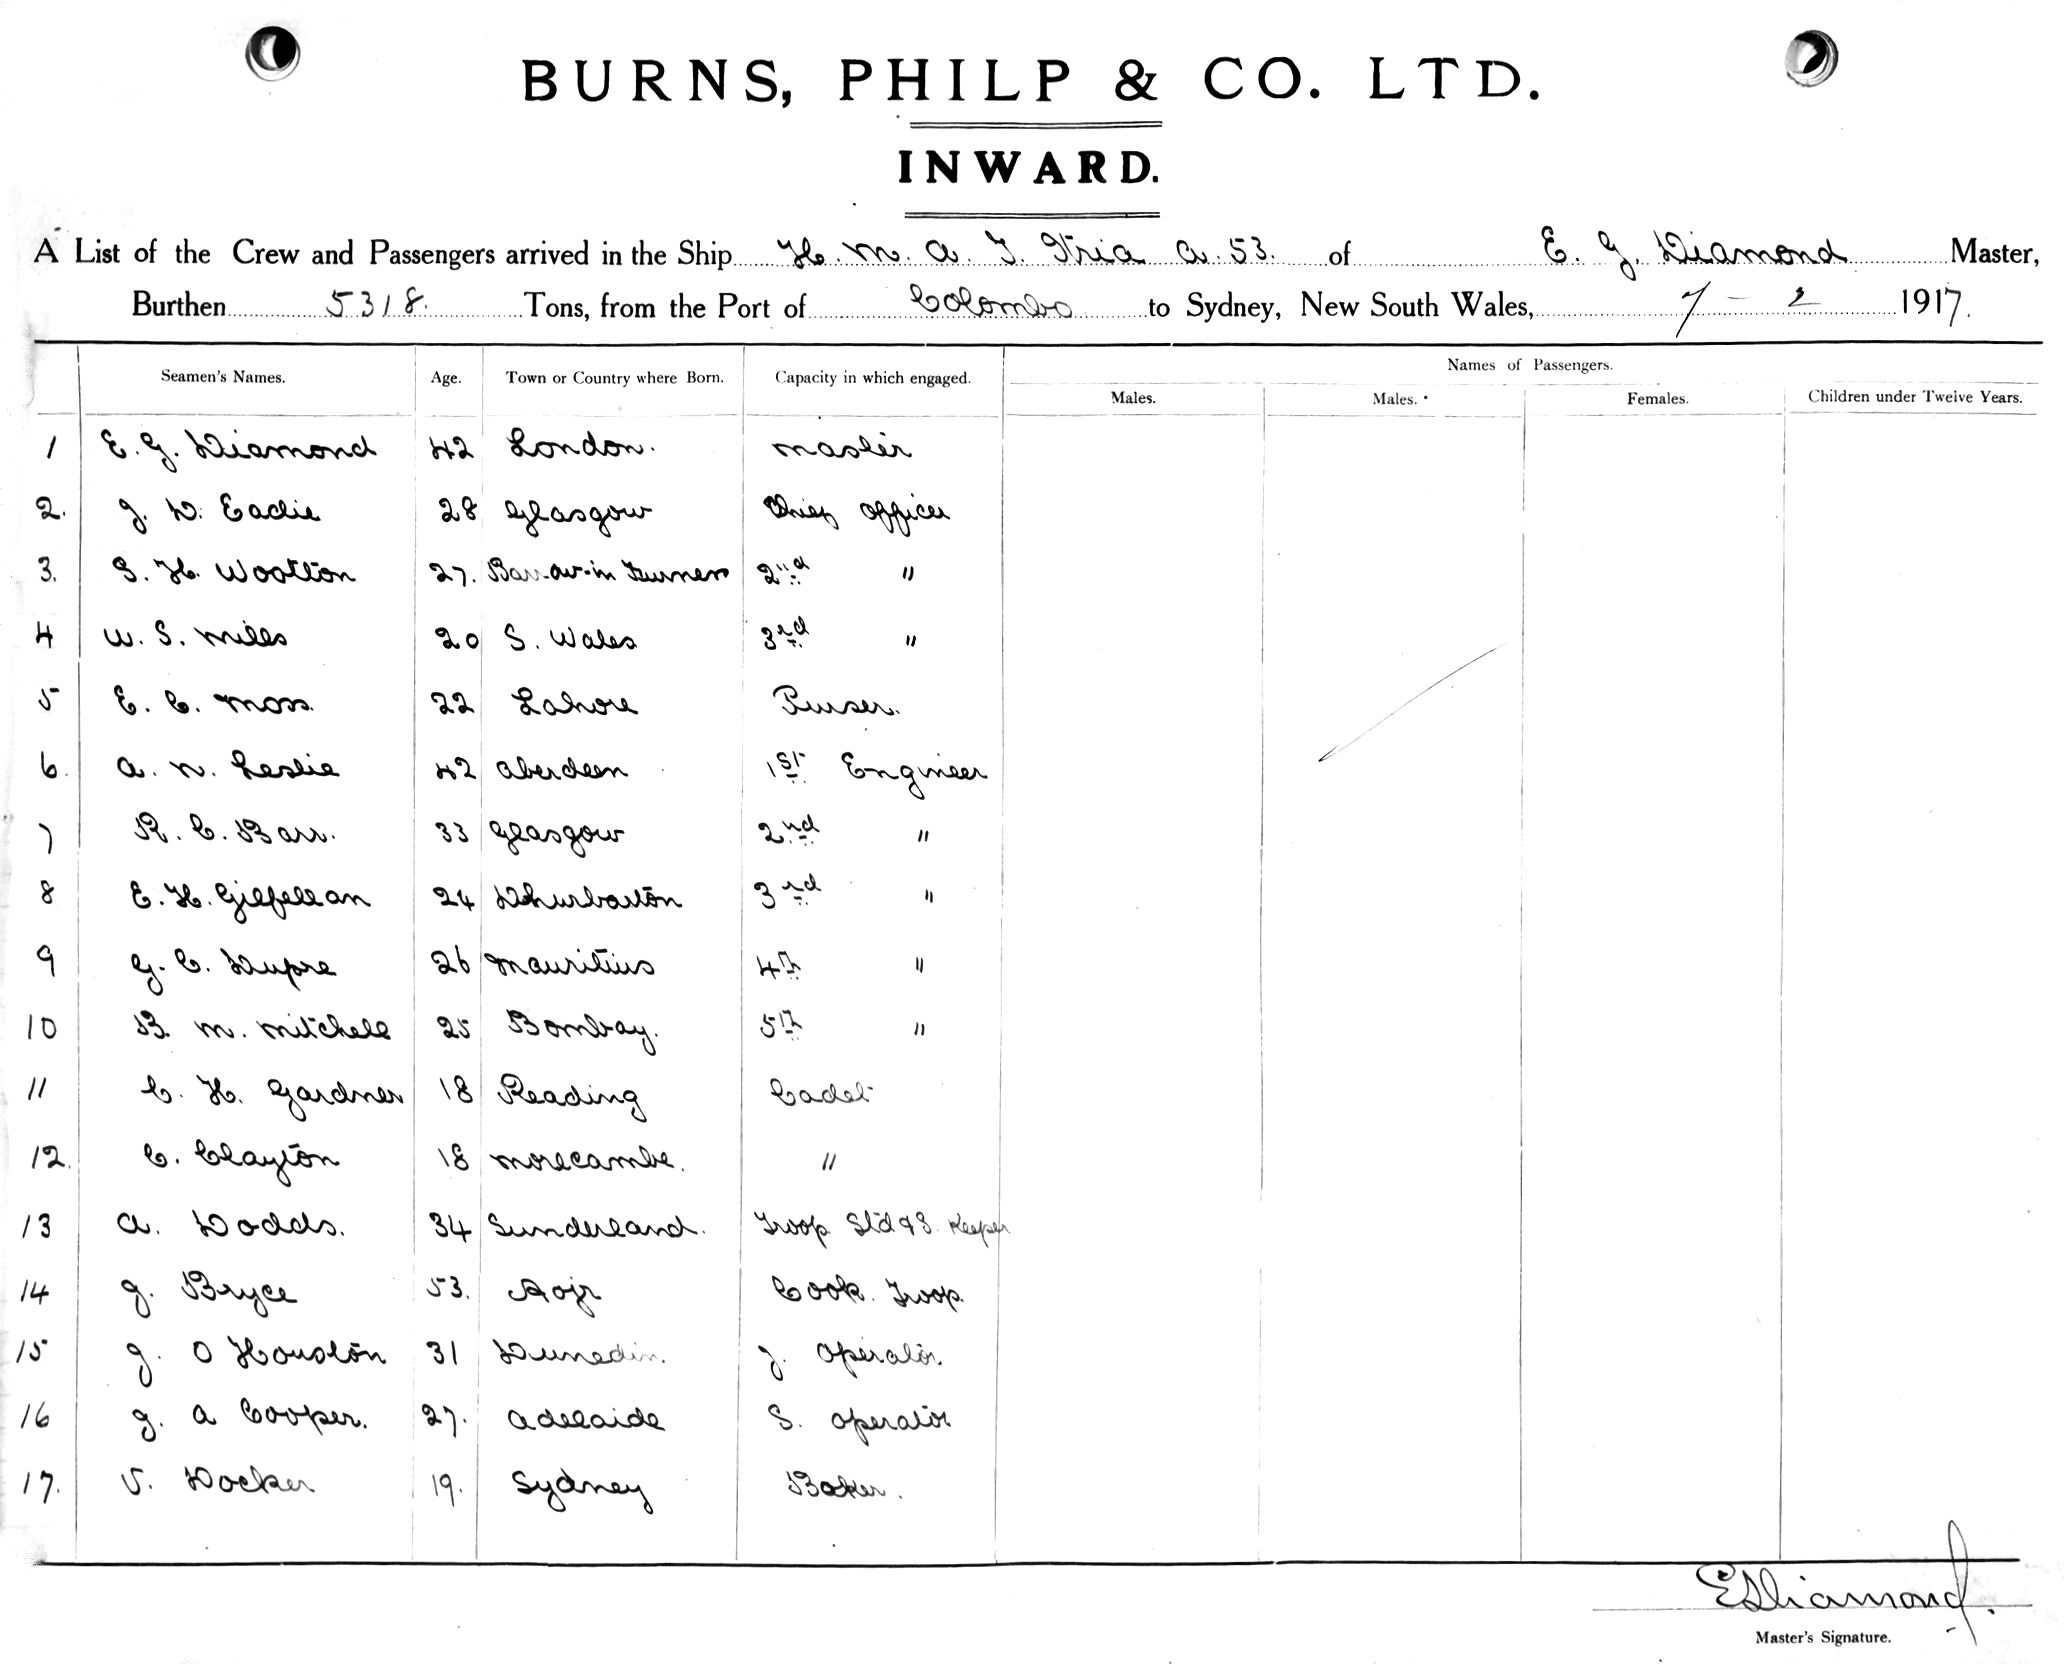 BURNS, PHILP & CO. LTD.
INWARD.
A List of the Crew and Passengers arrived in the Ship H. M. A. T. Itria A. 53. of E. G. Diamond Master,
Burthen 5318. Tons, from the Port of Colombo to Sydney, New South Wales, 7 - 2 1917.
Names of Passengers.
Seamen's Names. Age. Town or Country where Born. Capacity in which engaged. Males. Males. Females. Children under Twelve Years.
1 E. G. Diamond 42 London. Master
2. J. D. Eadie 28 Glasgow Chief Officer
3. S. H. Wootton 27. Barrow-in Furness 2nd "
4 W. S. Mills 20 S. Wales 3rd "
5 E. C. Moss. 22 Lahore Purser.
6. A. N. Leslie 42 Aberdeen 1st Engineer
7 R. C. Barr. 33 Glasgow 2nd "
8 E. H. Gilfellan 24 Dhurbarton 3rd "
9 G. C. Dupre 26 Mauritius 4th "
10 B. M. Mitchell 25 Bombay. 5th "
11 C. H. Gardner 18 Reading Cadet
12. C. Clayton 18 Morecambe. "
13 A. Dodds. 34 Sunderland. Troop Std & S. Keeper
14 G. Bryce 53. Cook. Troop.
15 J. O Houston 31 Dunedin. J. Operator
16 G. A Cooper. 27. Adelaide S. Operator
17. V. Docker 19. Sydney Baker.
E G Diamond.
Master's Signature.